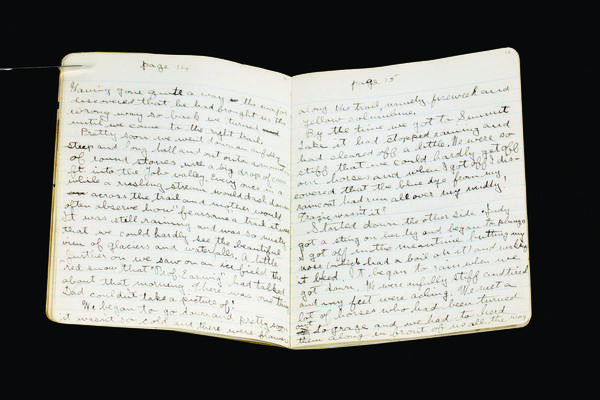 page 14
Having gone quite a way the major
discovered that he had brought us the
wrong way so back we turned
until we came to the right trail.
Pretty soon we went down an awfully
steep and long hill and out onto a
of round stones with a big drop of
ft into the Yoho valley. Every once in a
while a rushing stream would dash down
across the trail and mother would
often observe how fearsome a trail it was.
It was still raining and was so misty
that we could hardly see the beautiful
view of glaciers and waterfalls. A little
further on we saw on an ice field the
red snow that "Prof. Ewin" had talked
about that morning. There was one thing
Dad couldn't take a picture of!
We began to go down and pretty soon
it wasn't so cold and there were flowers
page 15
along the trail, mostly fireweed and
yellow columbine.
By the time we got to Summit
Lake it had stopped raining and
had cleared off a little. We were so
stiff that we could hardly get off
our horses and when I got off I dis-
covered that the blue dye from my
raincoat had run all over my middy!
Tragic wasn't it?
Started down the other side. Judy
got a sting on and began to plunge
I got off in the meantime putting my
nose which had a boil on it and
it bled. It began to rain when we
got down. We were awfully stiff and tired
and my feet were aching. We met a
lot of horses who had been turned
out to graze and we had to herd
them along in front of us all the way